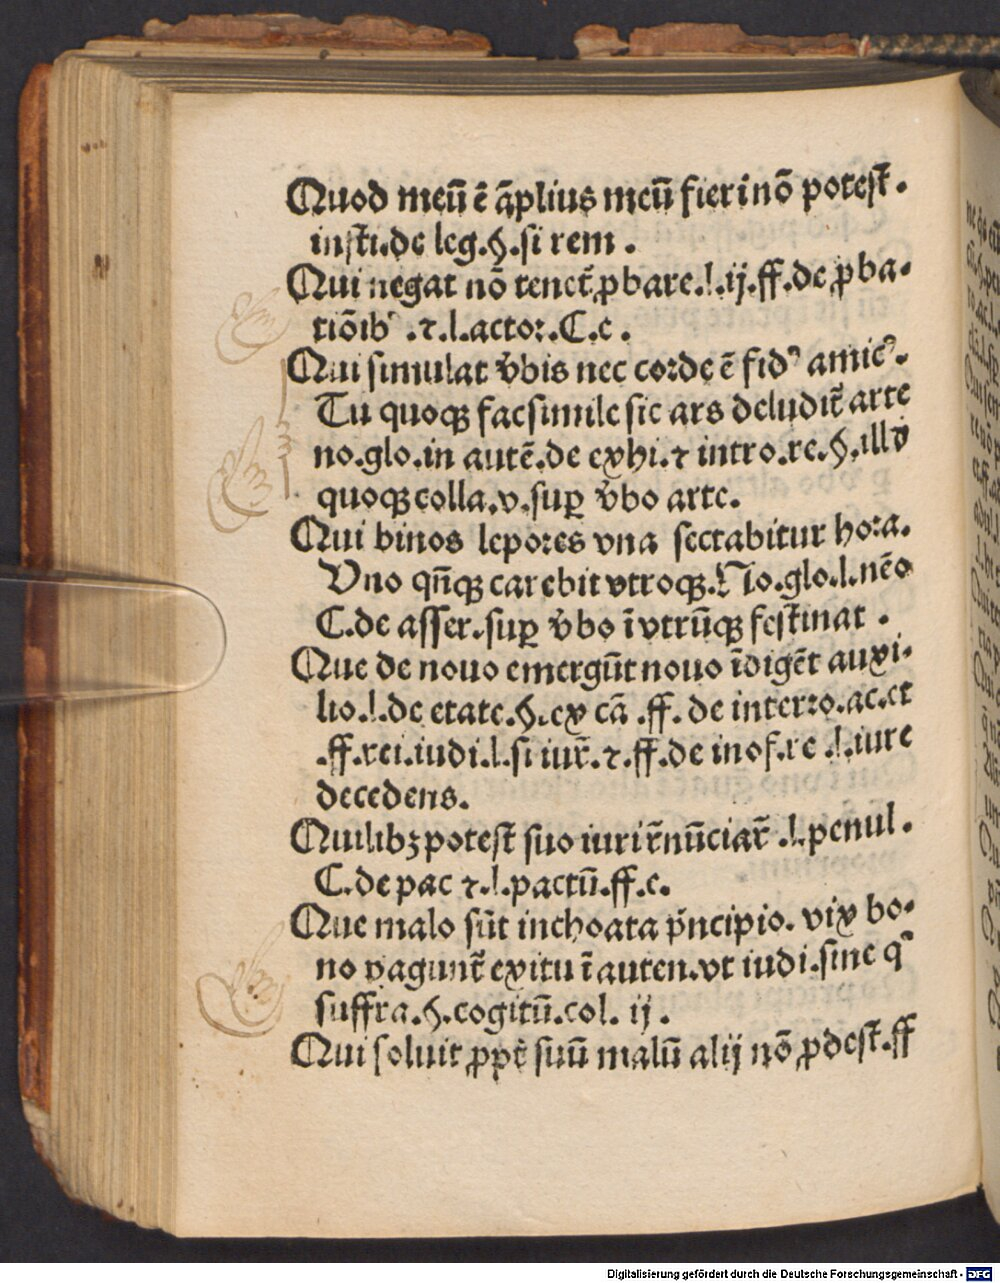 Quod meū ē āplius meū fieri nō potest.
insti.de leg.§.si rem.
Qui negat nō tenet̄ ꝓbare.l.ij.ff.de ꝓba-
tiōibꝰ.⁊.l.actor.C.e.
Qui simulat v̄bis nec corde ē fidꝰ amicꝰ.
Tu quoqꝫ fac simile sic ars deludit̄ arte
no.glo.in autē.de exhi.⁊ intro.re.§.illd̄
quoqꝫ colla.v.suꝑ v̄bo arte.
Qui binos lepores vna sectabitur hora.
Vno qn̄qꝫ carebit vtroqꝫ.No.glo.l.nēo
C.de asser.suꝑ v̄bo ī vtrūqꝫ festinat.
Que de nouo emergūt nouo īdigēt auxi-
lio.l.de etate.§.ex cā.ff.de interro.ac.et
.ff.rei.iudi.l.si iur̄.⁊.ff.de inof.te.l.iure
decedens.
Quilibꝫ potest suo iuri r̄nūciar̄.l.penul.
C.de pac ⁊.l.pactū.ff.e.
Que malo sūt inchoata p̄ncipio.vix bo-
no pagunt̄ exitu ī auten.vt iudi.sine q̄
suffra.§.cogitū.col.ij.
Qui soluit ꝓpt̄ suū malū alij nō ꝓdest.ff
Digitalisierung gefördert durch die Deutsche Forschungsgemeinschaft - DFG